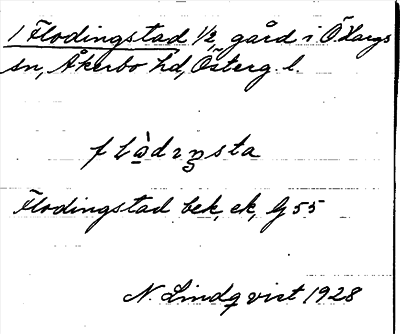 1 Flodingstad 1/2, gård i Ö Hargs
sn, Åkerbo hd, Österg. l.
Flodingstad bek, ek, G 55
N. Lindqvist 1928